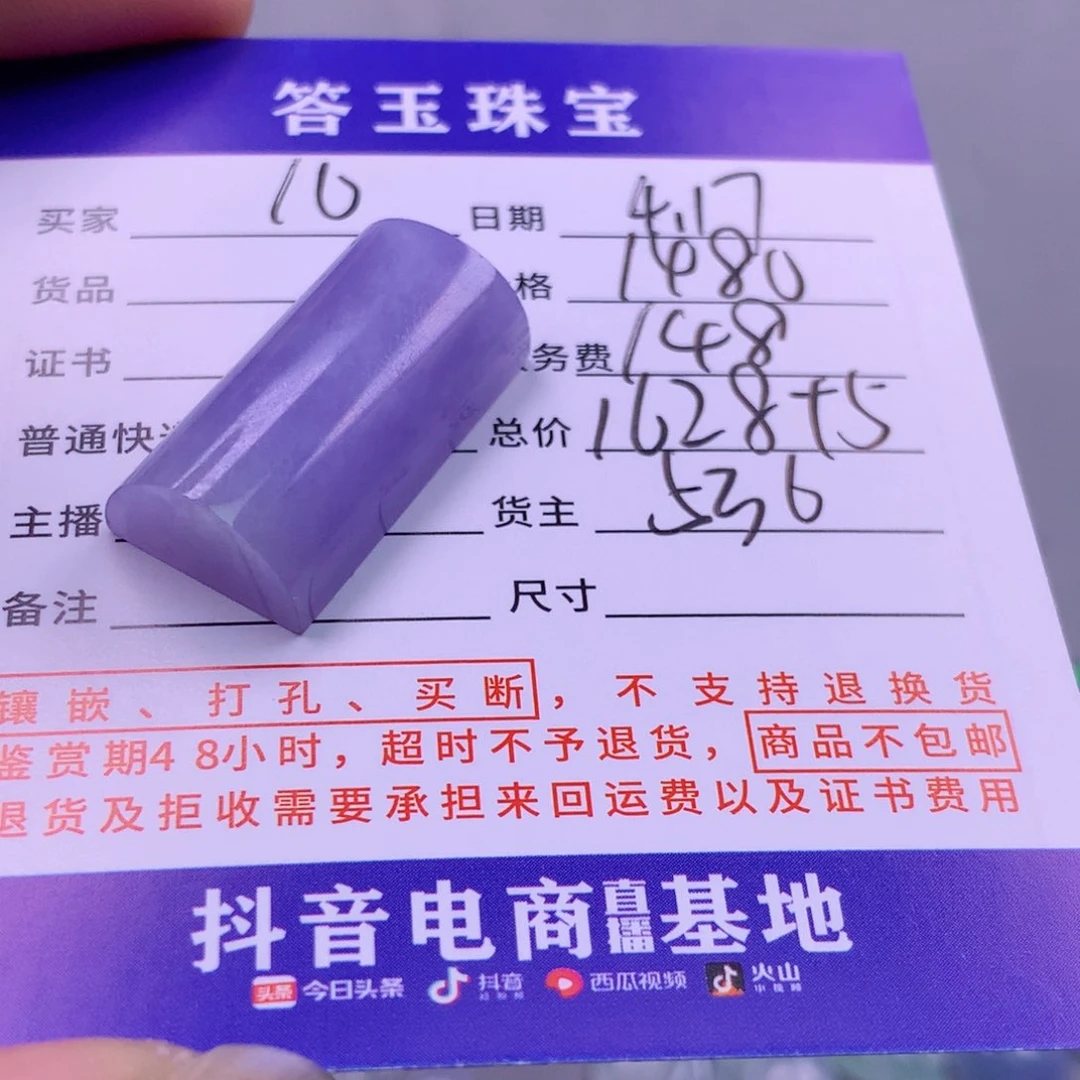 答玉珠宝
买家 10 日期 4.17
货品 格 1480
证书 务费 148
普通快 总价 1628+5
主播 货主 536
备注 尺寸
镶嵌、打孔、买断，不支持退换货
鉴赏期48小时，超时不予退货，商品不包邮
退货及拒收需要承担来回运费以及证书费用
抖音电商直播基地
头条 今日头条 抖音 西瓜视频 火山